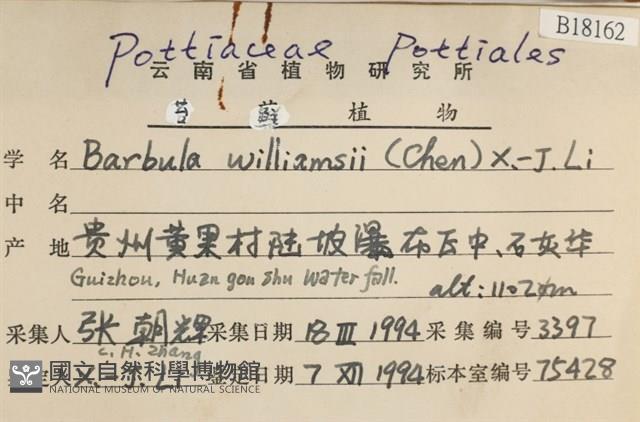 B18162
Pottiaceae Pottiales
云南省植物研究所
苔藓植物
学名 Barbula williamsii (Chen) X.-J. Li
中名
产地 贵州黄果村陡坡瀑布瓦中、石灰华
Guizhou, Huangoushu Water fall. alt: 1102m
采集人 张朝辉 采集日期 18 III 1994 采集编号 3397
C.H. Zhang
X.-J. Li 鉴定日期 7 XII 1994 标本室编号 75428
國立自然科學博物館
NATIONAL MUSEUM OF NATURAL SCIENCE